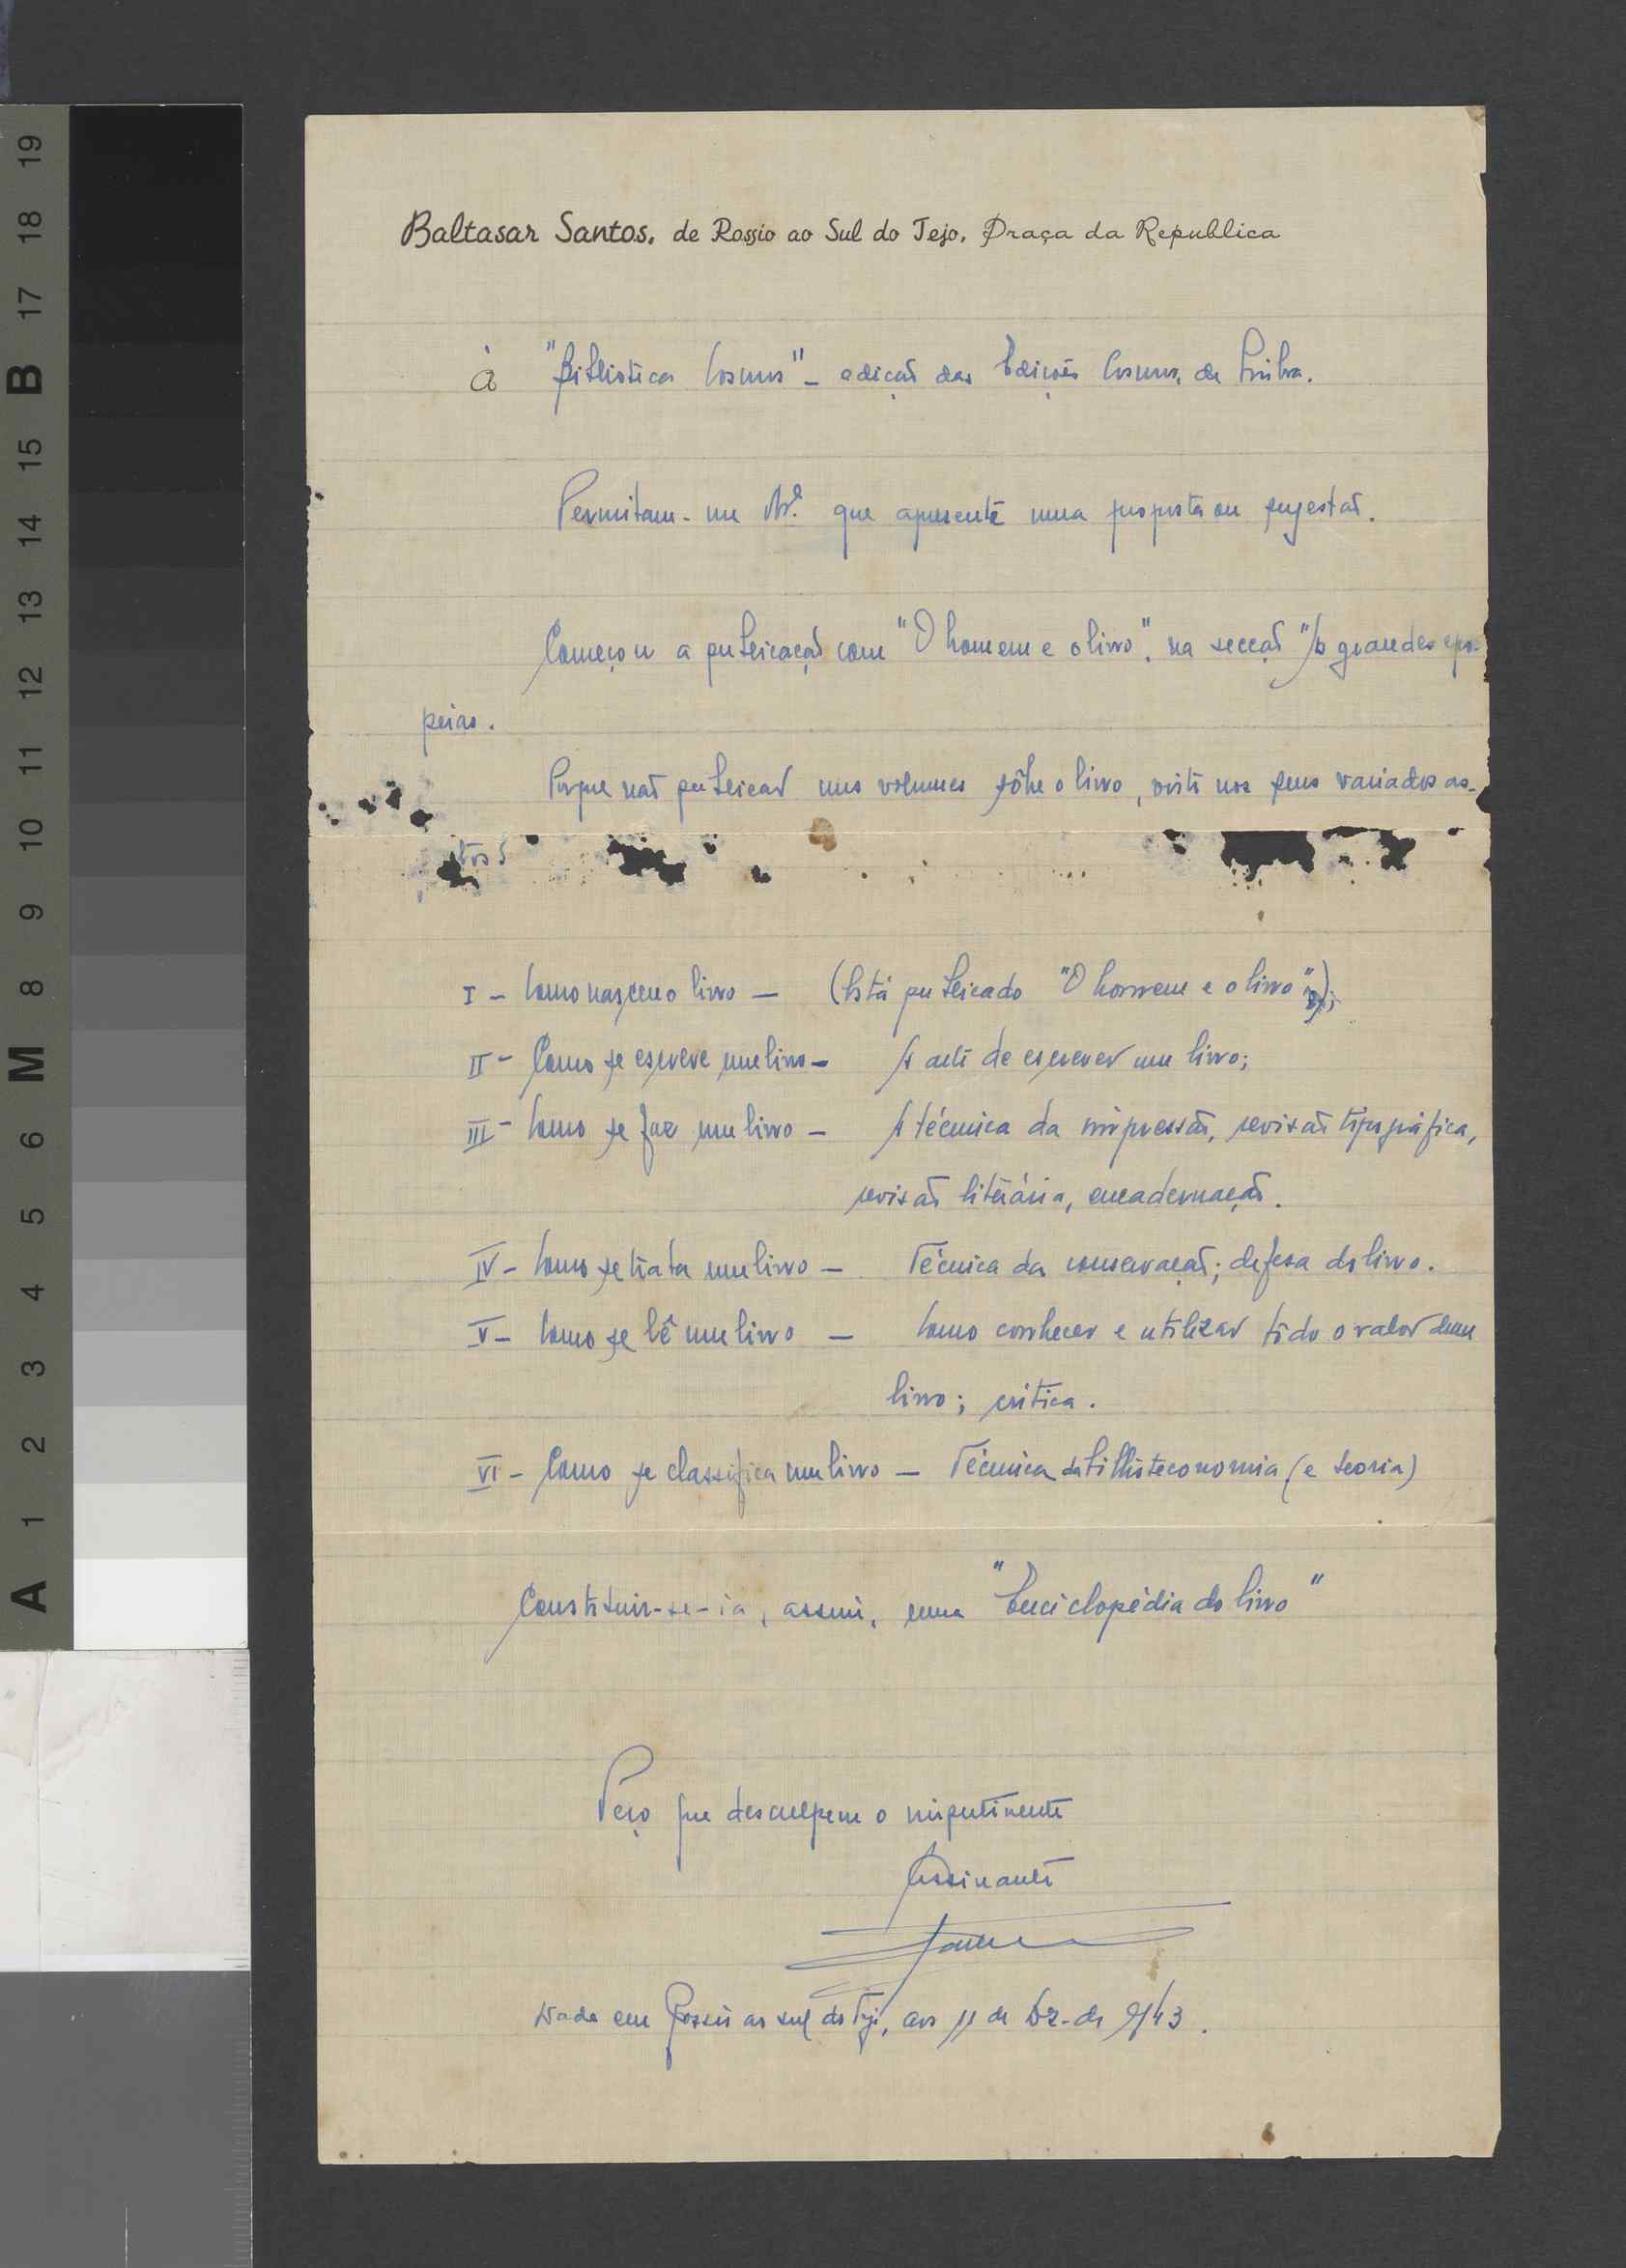 Baltasar Santos, de Rossio ao Sul do Tejo, Praça da Republica
À "Biblioteca Cosmos" - edição das Edições Cosmos, de Lisboa.
Permitam-me V.as que apresente uma proposta ou sugestão.
Começou a publicação com "O homem e o livro", na secção "As grandes epo-
peias.
Porque não publicar uns volumes sôbre o livro, visto nos seus variados as-
tos?
I - Como nasceu o livro - (Está publicado "O homem e o livro");
II - Como se escreve um livro - A arte de escrever um livro;
III - Como se faz um livro - A técnica da impressão, revisão tipográfica,
revisão literária, encadernação.
IV - Como se trata um livro - Técnica da conservação; defesa do livro.
V - Como se lê um livro - Como conhecer e utilizar todo o valor dum
livro; critica.
VI - Como se classifica um livro - Técnica da biblioteconomia (e teoria)
Constituir-se-ia, assim, uma "Enciclopédia do livro"
Peço que desculpem o impertinente
Assinante
Dada em Rossio ao sul do Tejo, aos 11 de Dz. de 943.
A 1 2 3 4 5 6 M 8 9 10 11 12 13 14 15 B 17 18 19